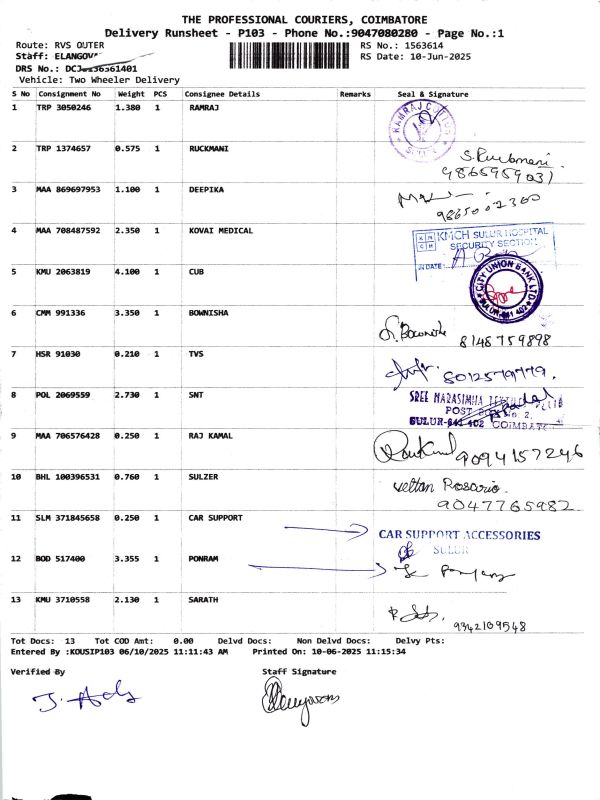 THE PROFESSIONAL COURIERS, COIMBATORE
Delivery Runsheet - P103 - Phone No.:9047080280 - Page No.:1
Route: RVS OUTER RS No.: 1563614
Staff: RS Date: 10-Jun-2025
DRS No.:
Vehicle: Two Wheeler Delivery
S No Consignment No Weight PCS Consignee Details Remarks Seal & Signature
1 TRP 3050246 1.380 1 RAMRAJ
2 TRP 1374657 0.575 1 RUCKMANI
9865959031
3 MAA 869697953 1.100 1 DEEPIKA
4 MAA 708487592 2.350 1 KOVAI MEDICAL
KMCH SULUR HOSPITAL
SECURITY SECTION
DATE
5 KMU 2063819 4.100 1 CUB
CITY UNION BANK LTD
6 CMM 991336 3.350 1 BOWNISHA
8148759898
7 HSR 91030 0.210 1 TVS
8 POL 2069559 2.730 1 SNT
SREE NARASIMHA
POST
SULUR-641 402 COIMBATORE
9 MAA 706576428 0.250 1 RAJ KAMAL
9094157246
10 BHL 100396531 0.760 1 SULZER
Rosario
9047765982
11 SLM 371845658 0.250 1 CAR SUPPORT
CAR SUPPORT ACCESSORIES
SULUR
12 BOD 517400 3.355 1 PONRAM
13 KMU 3710558 2.130 1 SARATH
9342109548
Tot Docs: 13 Tot COD Amt: 0.00 Delvd Docs: Non Delvd Docs: Delvy Pts:
Entered By :KOUSIP103 06/10/2025 11:11:43 AM Printed On: 10-06-2025 11:15:34
Verified By Staff Signature